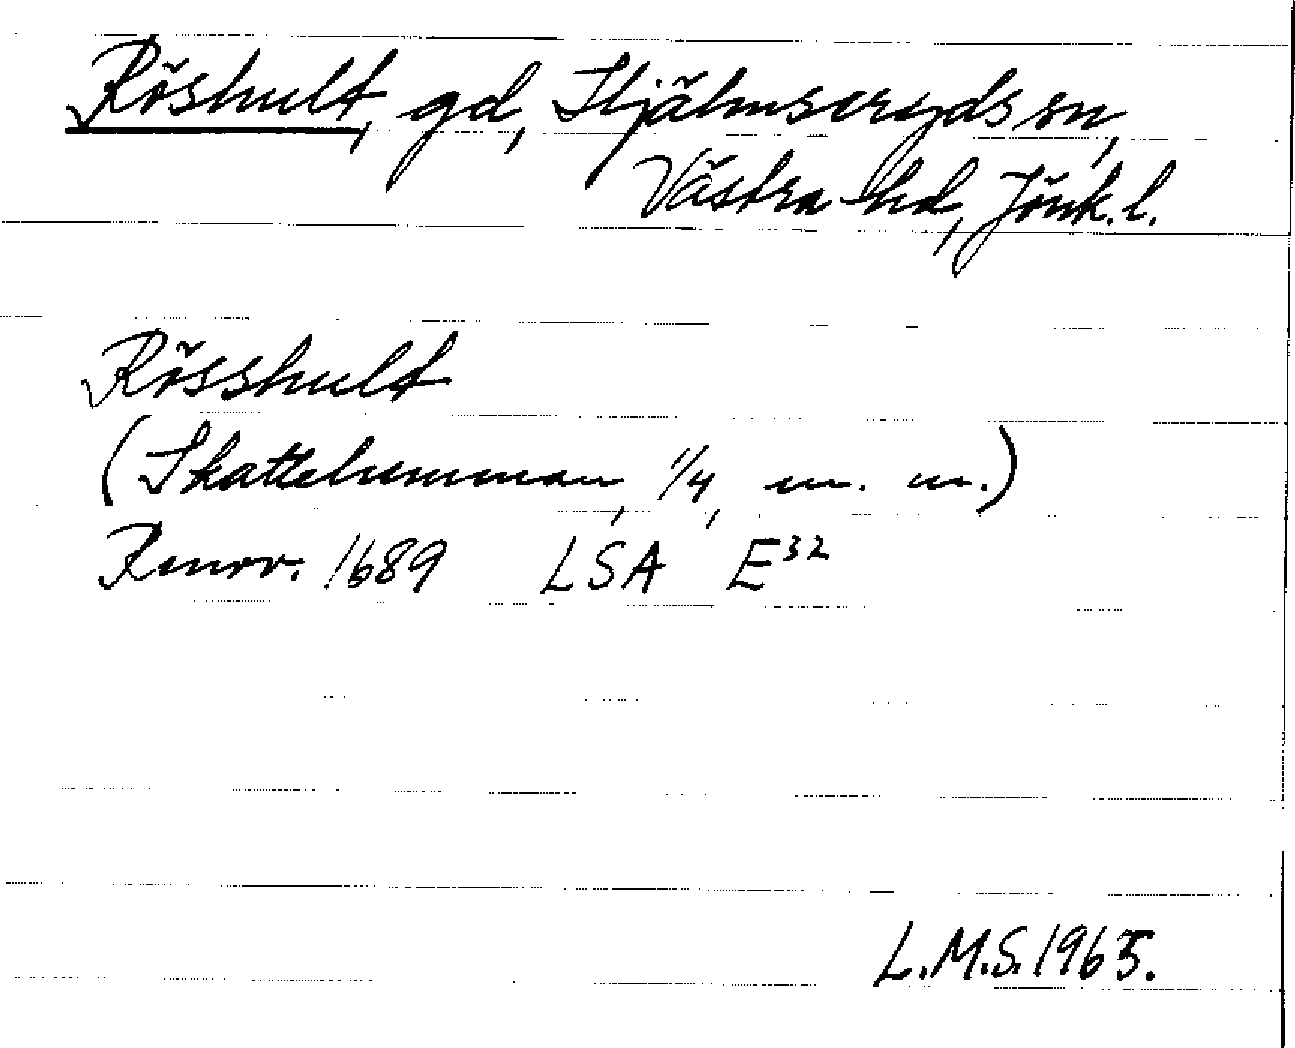 Röshult, gd, Hjälmseryds sn,
Västra hd, Jönk. l.
Rösshult
(Skattehemman, 1/4, m. m.)
Renov. 1689 LSA E32
L.M.S. 1965.